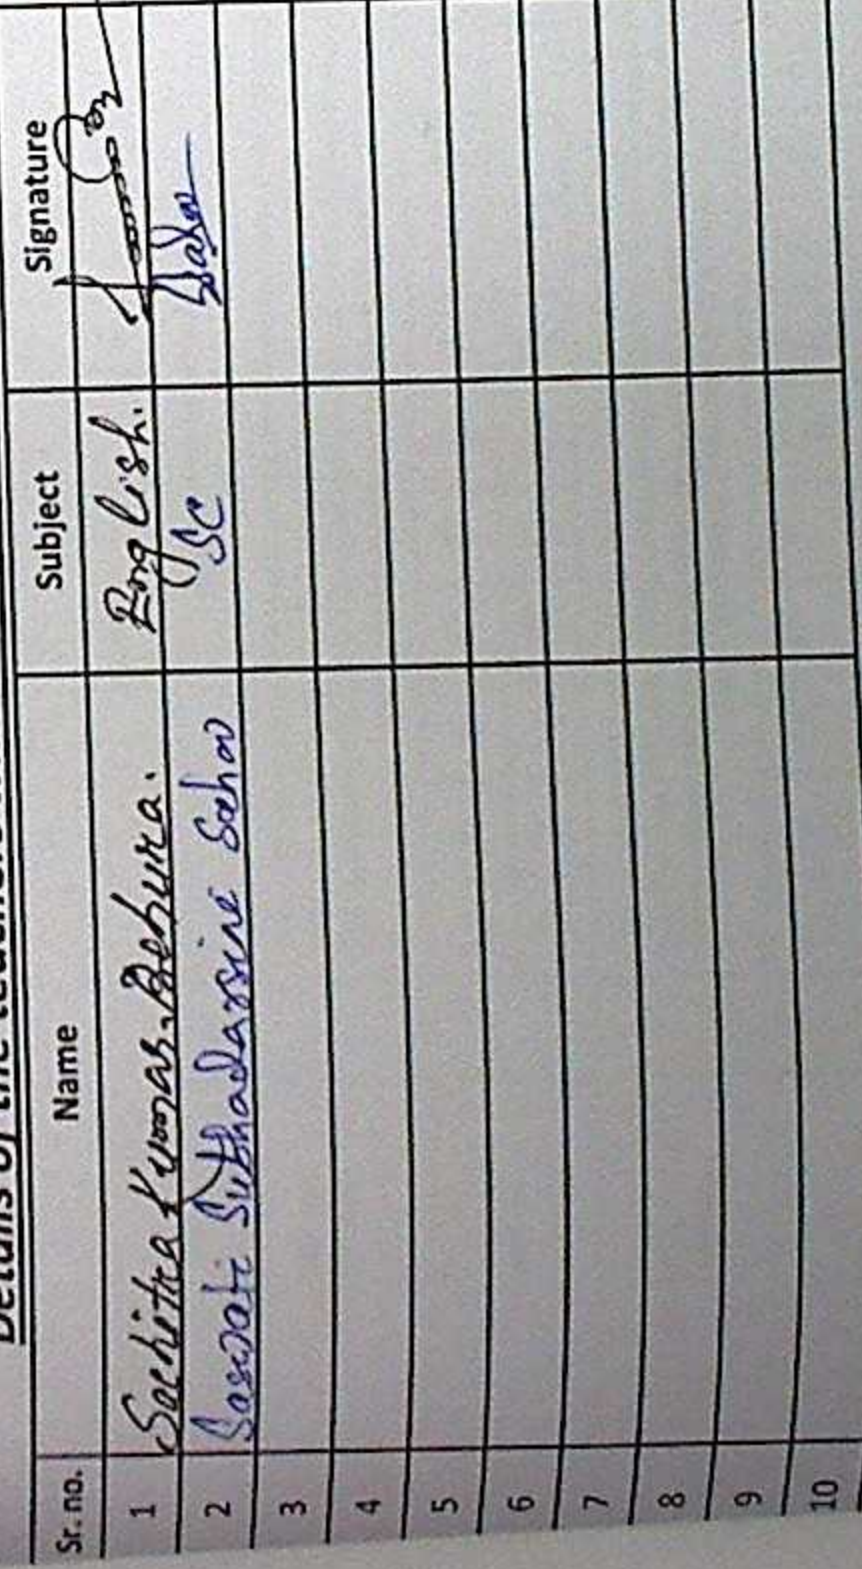 Details of the
Sr. no. Name Subject Signature
1 Sachitra Kumar Behura. English.
2 Saswati Subhadarsine Sahoo SC Sahoo
3
4
5
6
7
8
9
10